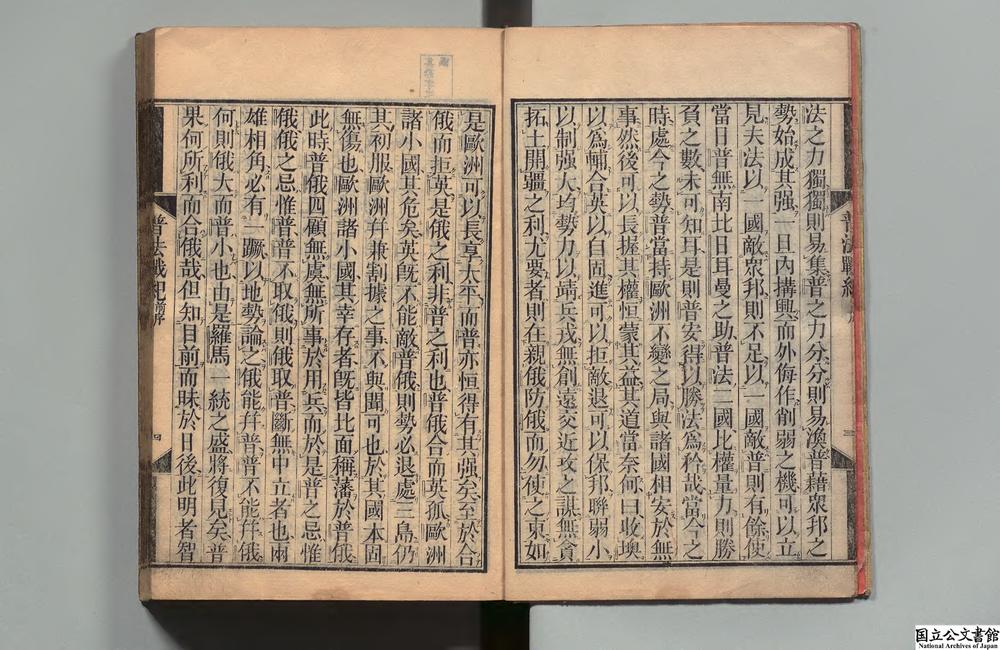 法之力獨獨則易集普之力分分則易渙普藉眾邦之
勢始成其强一旦內搆興而外侮作削弱之機可以立
見夫法以一國敵眾邦則不足以一國敵普則有餘使
當日普無南北日耳曼之助普法二國比權量力則勝
負之數未可知耳是則普安得以勝法為矜哉當今之
時處今之勢普當持歐洲不變之局與諸國相安於無
事然後可以長握其權恒蒙其益其道當奈何曰收墺
以為輔合英以自固進可以拒敵退可以保邦聯弱小
以制强大均勢力以靖兵戎無創遠交近攻之謀無貪
拓土開疆之利尤要者則在親俄防俄而勿使之東如
是歐洲可以長享太平而普亦恒得有其强矣至於合
俄而拒英是俄之利非普之利也普俄合而英孤歐洲
諸小國其危矣英旣不能敵普俄則勢必退處三島仍
其初服歐洲幷兼割據之事不與聞可也於其國本固
無傷也歐洲諸小國其幸存者旣皆北面稱藩於普俄
此時普俄四顧無虞無所事於用兵而於是普之忌惟
俄俄之忌惟普普不取俄則俄取普斷無中立者也兩
雄相角必有一蹶以地勢論之俄能幷普普不能幷俄
何則俄大而普小也由是羅馬一統之盛將復見矣普
果何所利而合俄哉但知目前而昧於日後此明者智
普法戰紀
三
普法戰紀 前序
四
国立公文書館
National Archives of Japan